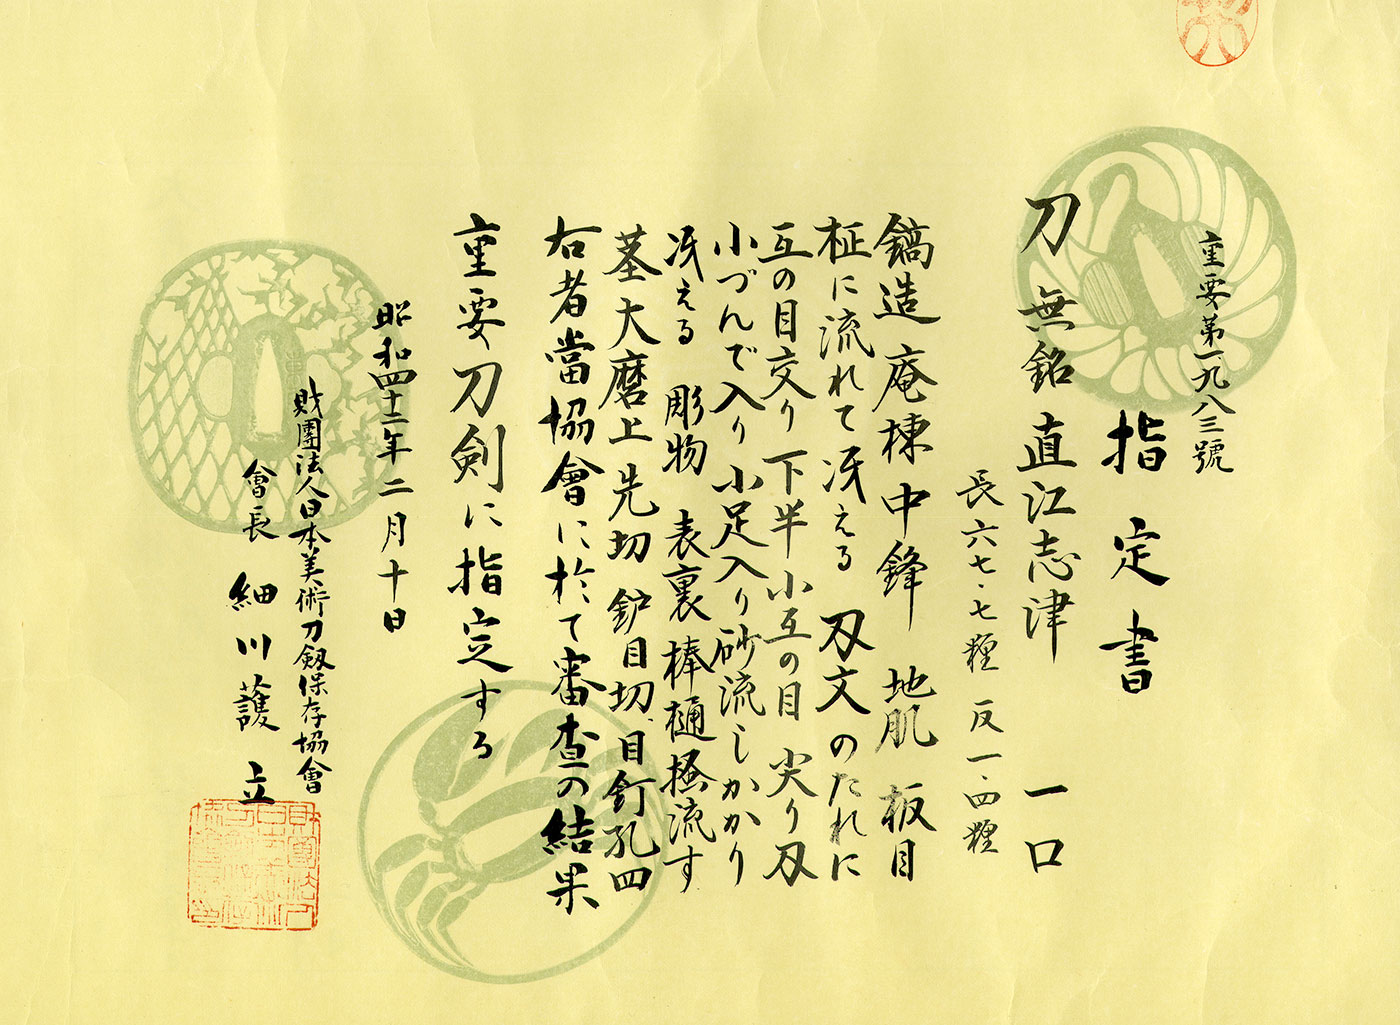 重要第一九八三號
指定書
刀 無銘 直江志津 一口
長六七・七糎 反一・四糎
鎬造 庵棟 中鋒 地肌 板目
柾に流れて冴える 刃文 のたれに
互の目交り 下半 小互の目 尖り刃
小づんで入り 小足入り 砂流しかかり
冴える 彫物 表裏 棒樋掻流す
茎 大磨上 先切 鈩目切、目釘孔四
右者當協會に於て審査の結果
重要刀剣に指定する
昭和四十二年二月十日
財團法人日本美術刀剱保存協會
會長 細川護立